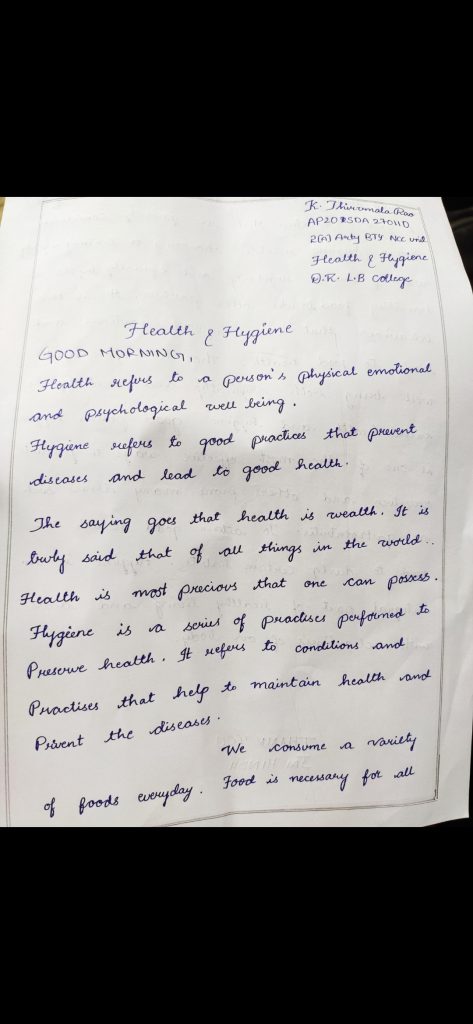 K. Thirumala Rao
AP20 SDA 270110
2(A) Arty BTY NCC unit
Health & Hygiene
D.R. L.B College
Health & Hygiene
GOOD MORNING,
Health refers to a person's physical emotional
and psychological well being.
Hygiene refers to good practices that prevent
diseases and lead to good health.
The saying goes that health is wealth. It is
truly said that of all things in the world..
Health is most precious that one can possess.
Hygiene is a series of practises performed to
Preserve health. It refers to conditions and
Practises that help to maintain health and
Privent the diseases.
We consume a variety
of foods everyday. Food is necessary for all